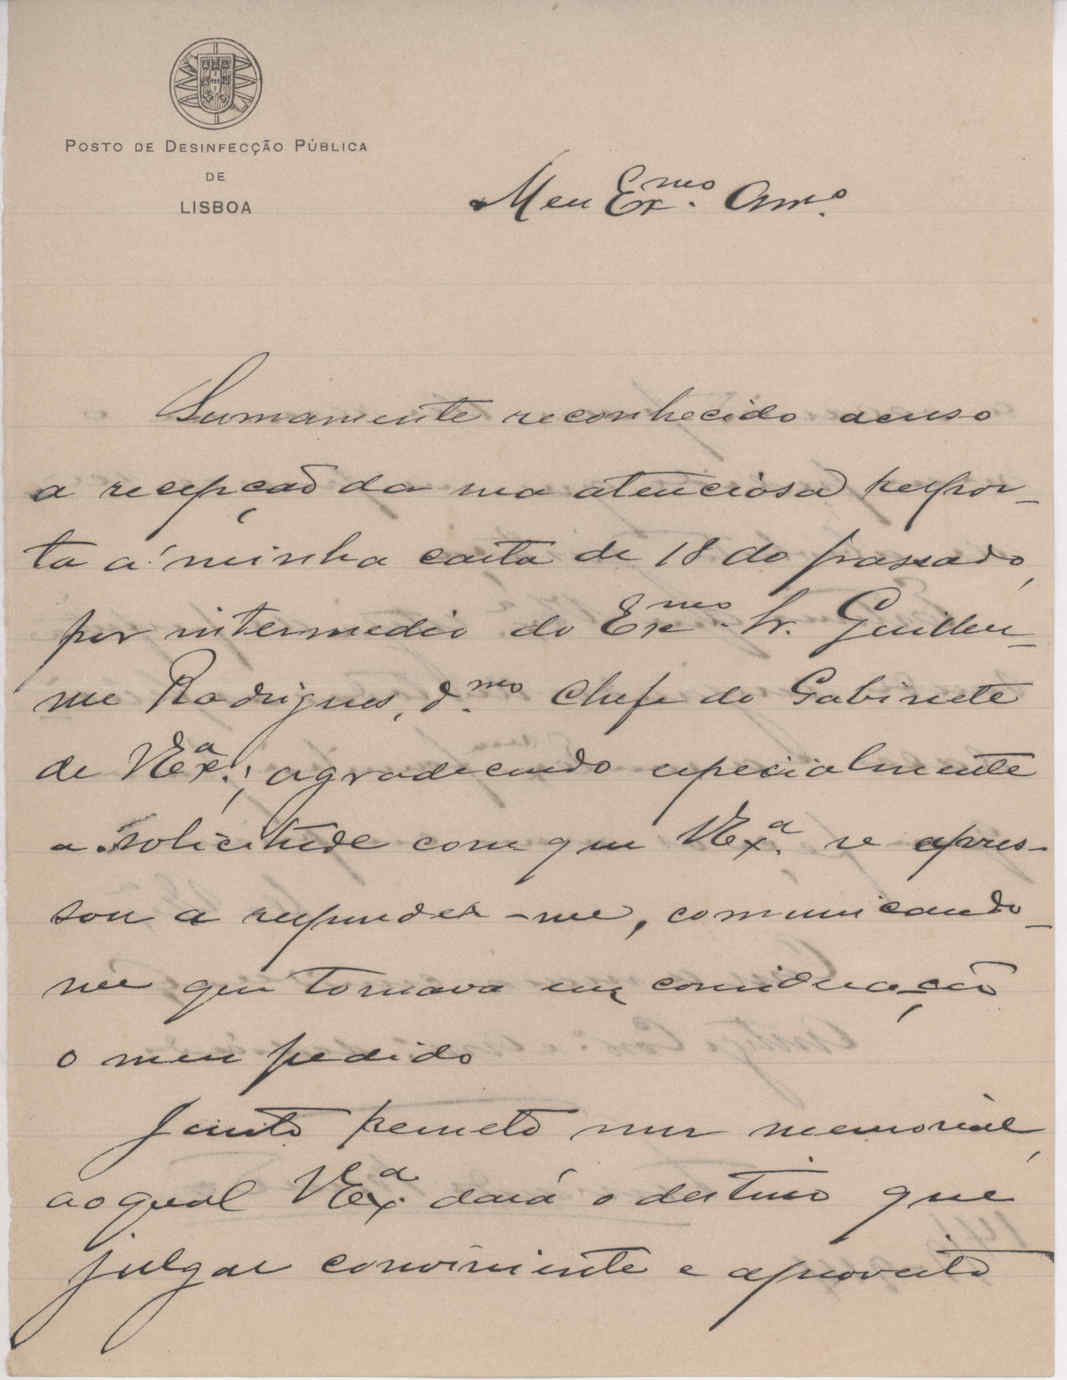 POSTO DE DESINFECÇÃO PÚBLICA
DE
LISBOA
Meu Ex.mo Am.o
Sumamente reconhecido acuso
a recepção da sua atenciosa respos-
ta á minha carta de 18 do passado,
por intermedio do Ex.mo Sr. Guilher-
me Rodrigues, d.mo Chefe do Gabinete
de V Ex.a; agradecendo especialmente
a solicitude com que V Ex.a se apres-
sou a responder-me, comunicando-
me que tomava em consideração
o meu pedido
Junto remeto um memorial,
ao qual V Ex.a dará o destino que
julgar conveniente e aproveito